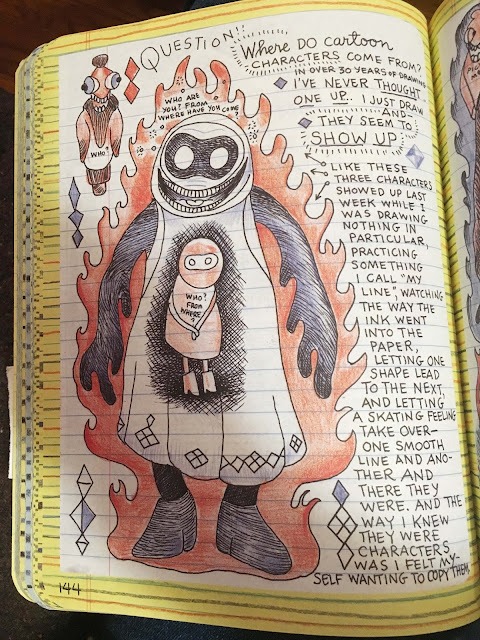 QUESTION!!
Where DO cartoon
CHARACTERS COME FROM?
IN OVER 30 YEARS OF DRAWING
I'VE NEVER THOUGHT
ONE UP. I JUST DRAW
-AND-
THEY SEEM TO
SHOW UP.
LIKE THESE
THREE CHARACTERS
SHOWED UP LAST
WEEK WHILE I
WAS DRAWING
NOTHING IN
PARTICULAR,
PRACTICING
SOMETHING
I CALL "MY
LINE", WATCHING
THE WAY THE
INK WENT
INTO THE
PAPER,
LETTING ONE
SHAPE LEAD
TO THE NEXT
AND LETTING
A SKATING FEELING
TAKE OVER—
ONE SMOOTH
LINE AND ANO-
THER AND
THERE THEY
WERE. AND THE
WAY I KNEW
THEY WERE
CHARACTERS
WAS I FELT MY-
SELF WANTING TO COPY THEM.
WHO ARE
YOU? FROM
WHERE HAVE YOU COME?
WHO?
WHO?
FROM
WHERE
?
144